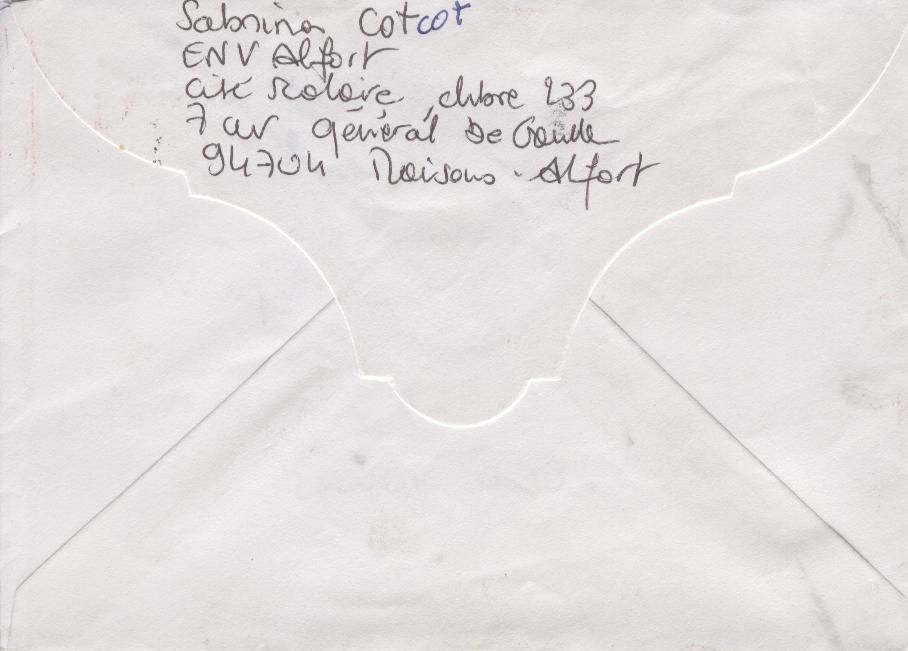 Sabrina Cotcot
ENV Alfort
cité scolaire, chbre 233
7 av général De Gaulle
94704 Maisons-Alfort